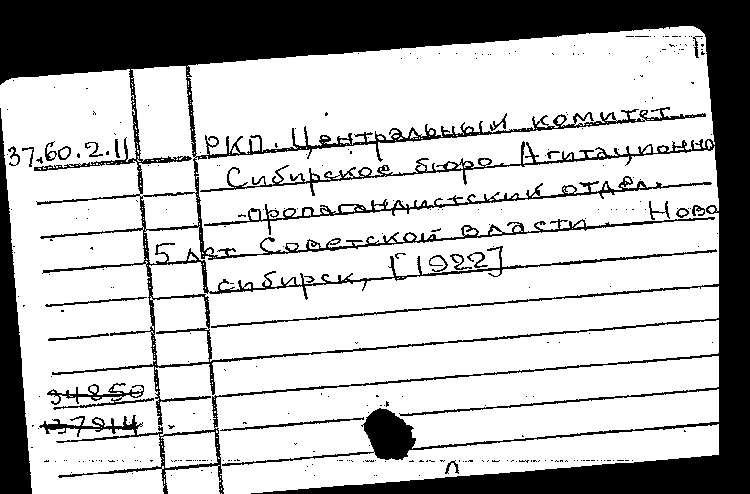 37.60.2.11 РКП. Центральный комитет
Сибирское бюро. Агитационно
-пропагандистский отдел.
5 лет Советской власти. Ново
сибирск, [1922]
34850
137914